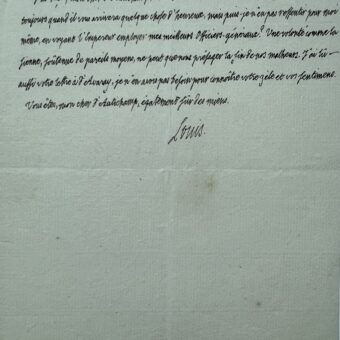 toujours quand il vous arrivera quelque chose d'heureux, mais puis-je n'en pas ressentir pour moi
même, en voyant l'Empereur employer mes meilleurs officiers généraux? Une volonté comme la
sienne, soutenue de pareils moyens, ne peut que nous présager la fin de nos malheurs. J'ai lû
aussi votre lettre à d'Avaray, je n'en avois pas besoin pour connoître votre zèle et vos sentimens.
Vous êtes, mon cher d'Autichamp, également sûr des miens.
Louis.